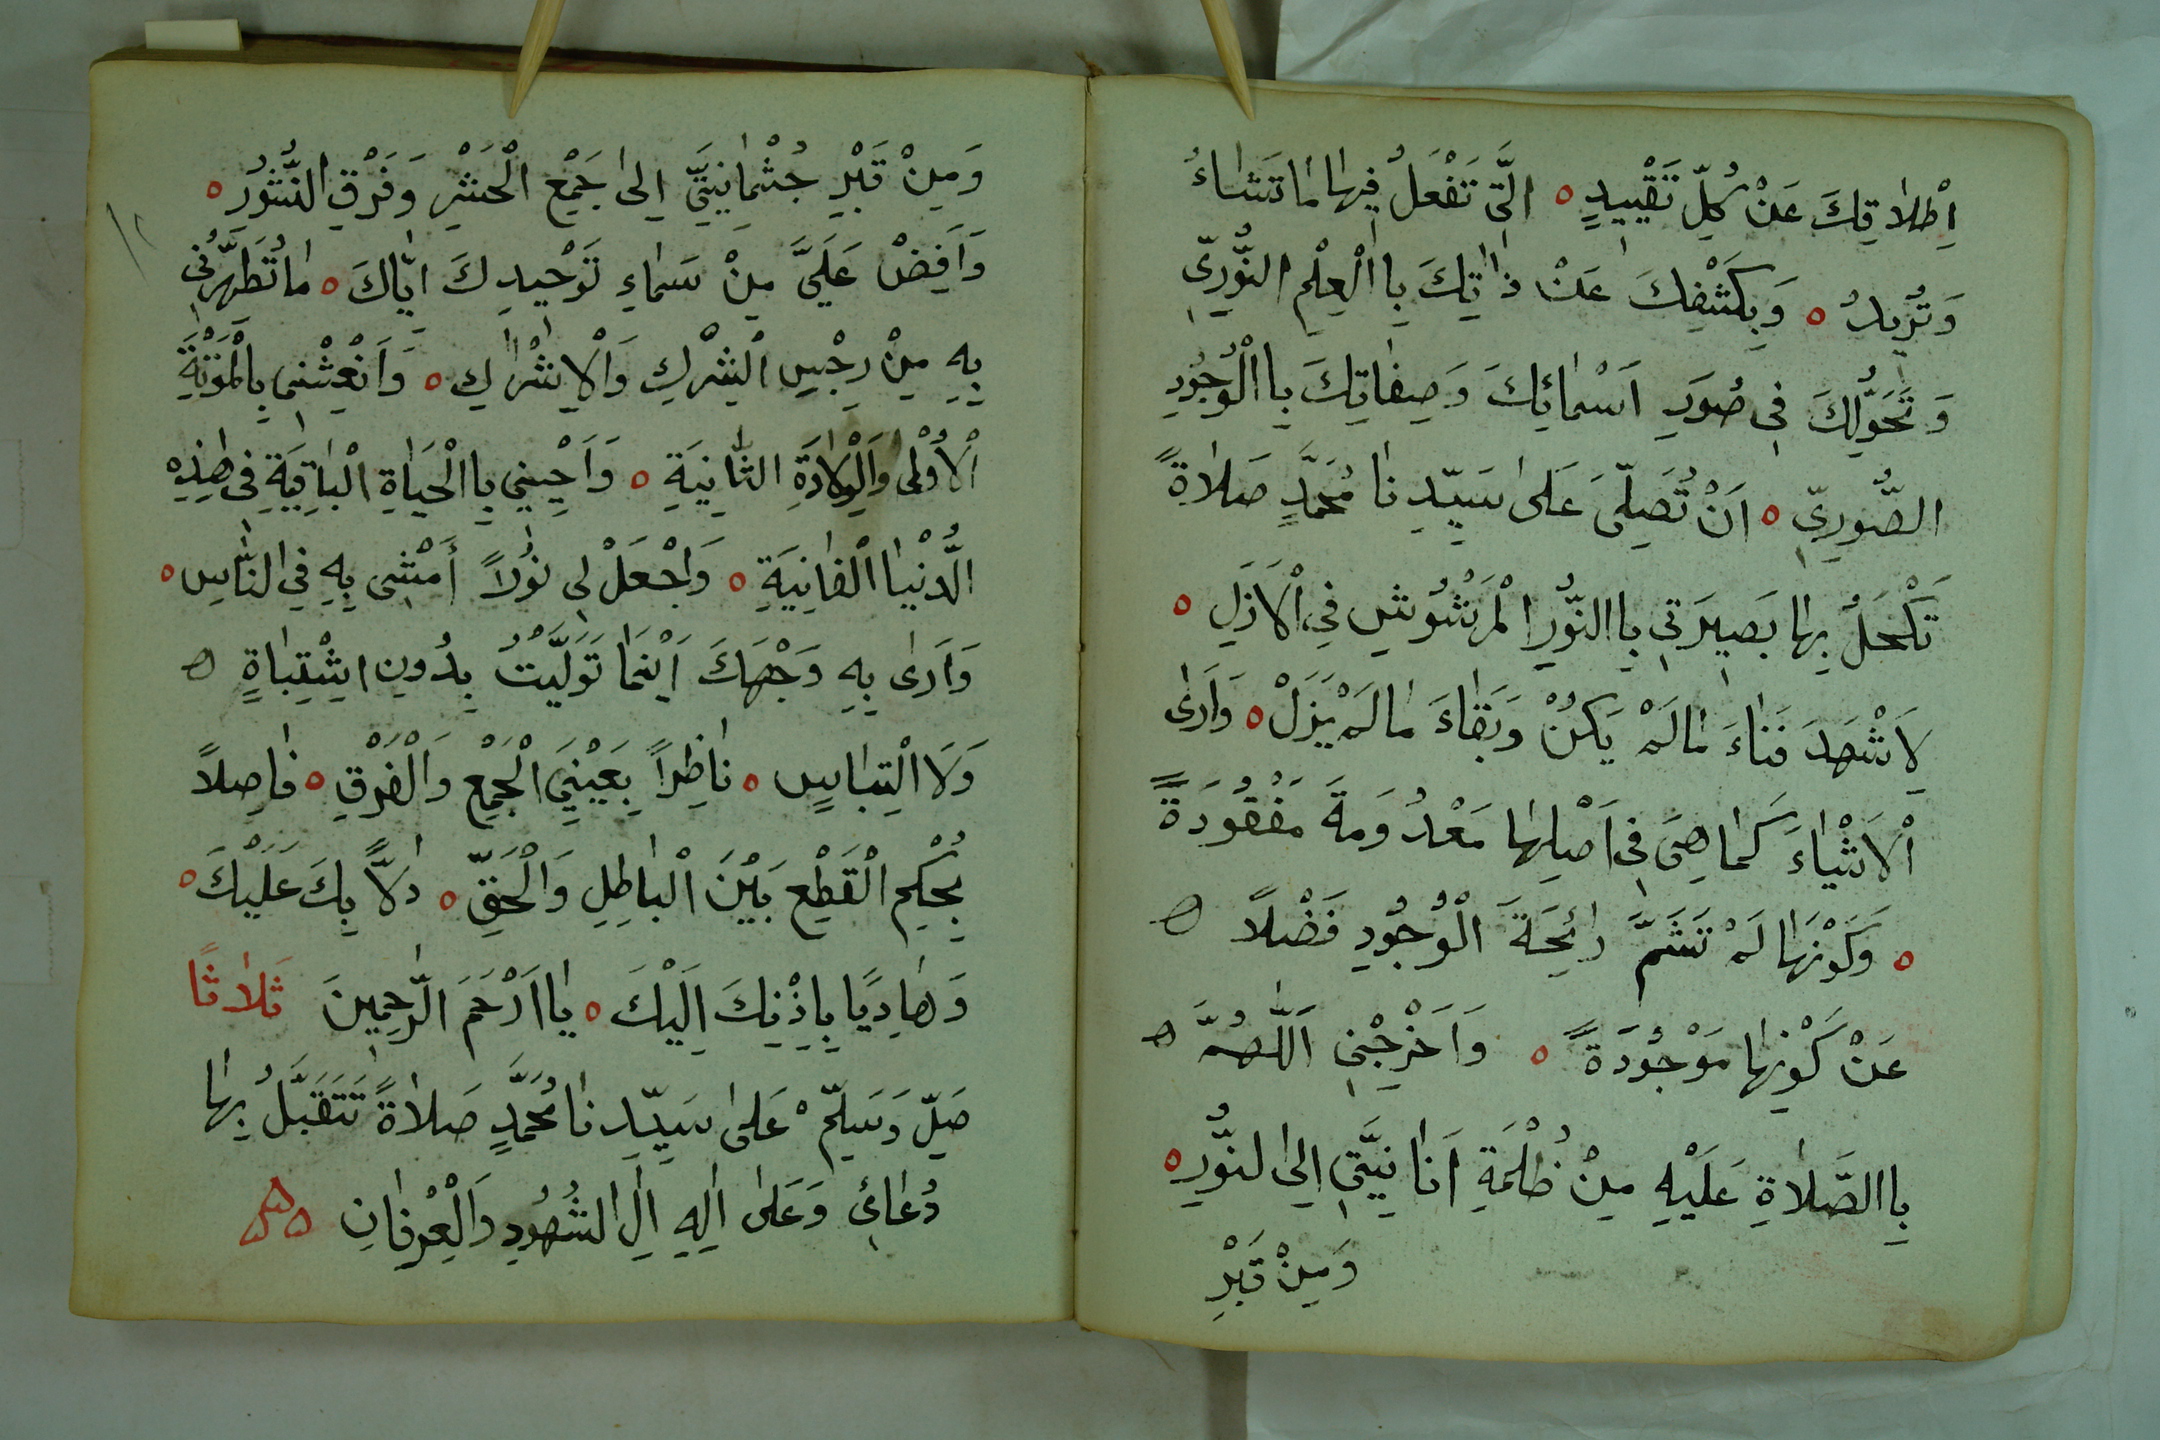 اِطْلَاقِكَ عَنْ كُلِّ تَقْيِيدٍ ه الَّتِي تَفْعَلُ فِيهَا مَا تَشَاءُ
وَتُرِيدُ ه وَبِكَشْفِكَ عَنْ ذَاتِكَ بِاالْعِلْمِ النُّورِيِّ
وَتَحَوُّلِكَ فِي صُوَرِ اَسْمَائِكَ وَصِفَاتِكَ بِاالْوُجُودِ
الصُّورِيِّ ه اَنْ تُصَلِّيَ عَلَى سَيِّدِنَا مُحَمَّدٍ صَلَاةً
تَكْحَلُ بِهَا بَصِيرَتِي بِاالنُّورِ الْمَرْشُوشِ فِي الْاَزَلِ ه
لِاَشْهَدَ فَنَاءَ مَا لَمْ يَكُنْ وَبَقَاءَ مَا لَمْ يَزَلْ ه وَاَرَى
الْاَشْيَاءَ كَمَا هِيَ فِي اَصْلِهَا مَعْدُومَةَ مَفْقُودَةً
ه وَكَوْنَهَا لَمْ تَشَمَّ رَائِحَةَ الْوُجُودِ فَضْلًا ه
عَنْ كَوْنِهَا مَوْجُودَةً ه وَاَخْرِجْنِي اَللّٰهُمَّ ه
بِاالصَّلَاةِ عَلَيْهِ مِنْ ظُلْمَةِ اَنَانِيَّتِي اِلَى لنُّورِ ه
وَمِنْ قَبْرِ
وَمِنْ قَبْرِ جُثْمَانِيَّتِي اِلَى جَمْعِ الْحَشْرِ وَفَرْقِ النُّشُورِ ه
وَاَفِضْ عَلَيَّ مِنْ سَمَاءِ تَوْحِيدِكَ اِيَّاكَ ه مَا تُطَهِّرُنِي
بِهِ مِنْ رِجْسِ الشِّرْكِ وَالْاِشْرَاكِ ه وَاَنْعِشْنِي بِالْمَوْتَةِ
الْاُوْلَى وَالْوِلَادَةِ الثَّانِيَةِ ه وَاَحْيِنِي بِاالْحَيَاةِ الْبَاقِيَةِ فِي هٰذِهِ
الدُّنْيَا الْفَانِيَةِ ه وَاجْعَلْ لِي نُورًا أَمْشِي بِهِ فِي النَّاسِ ه
وَاَرَى بِهِ وَجْهَكَ اَيْنَمَا تَوَلَّيْتُ بِدُونِ اشْتِبَاةٍ ه
وَلَا الْتِبَاسٍ ه نَاظِرًا بِعَيْنَيِ الْجَمْعِ وَالْفَرْقِ ه فَاصِلًا
بِحُكْمِ الْقَطْعِ بَيْنَ الْبَاطِلِ وَالْحَقِّ ه دَالًّا بِكَ عَلَيْكَ ه
وَهَادِيًا بِاِذْنِكَ اِلَيْكَ ه يَا اَرْحَمَ الرَّاحِمِينَ ثَلَاثًا
صَلِّ وَسَلِّمْ عَلَى سَيِّدِنَا مُحَمَّدٍ صَلَاةً تَتَقَبَّلُ بِهَا
دُعَائِي وَعَلَى اٰلِهِ اٰلِ الشُّهُودِ وَالْعِرْفَانِ ه